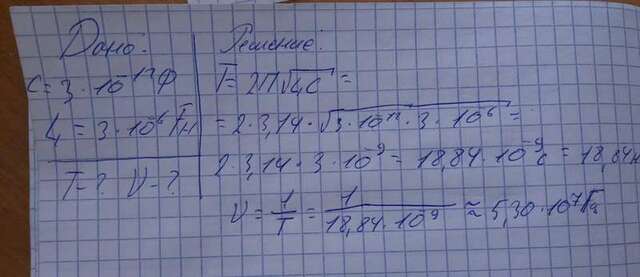 Дано:
C = 3 · 10⁻¹² Ф
L = 3 · 10⁻⁶ Гн
T - ? ν - ?
Решение:
T = 2π√LC =
= 2 · 3,14 · √3 · 10¹² · 3 · 10⁶ =
2 · 3,14 · 3 · 10⁻⁹ = 18,84 · 10⁻⁹ с = 18,84 н
ν = 1/T = 1/18,84 · 10⁻⁹ ≈ 5,30 · 10⁷ Гц